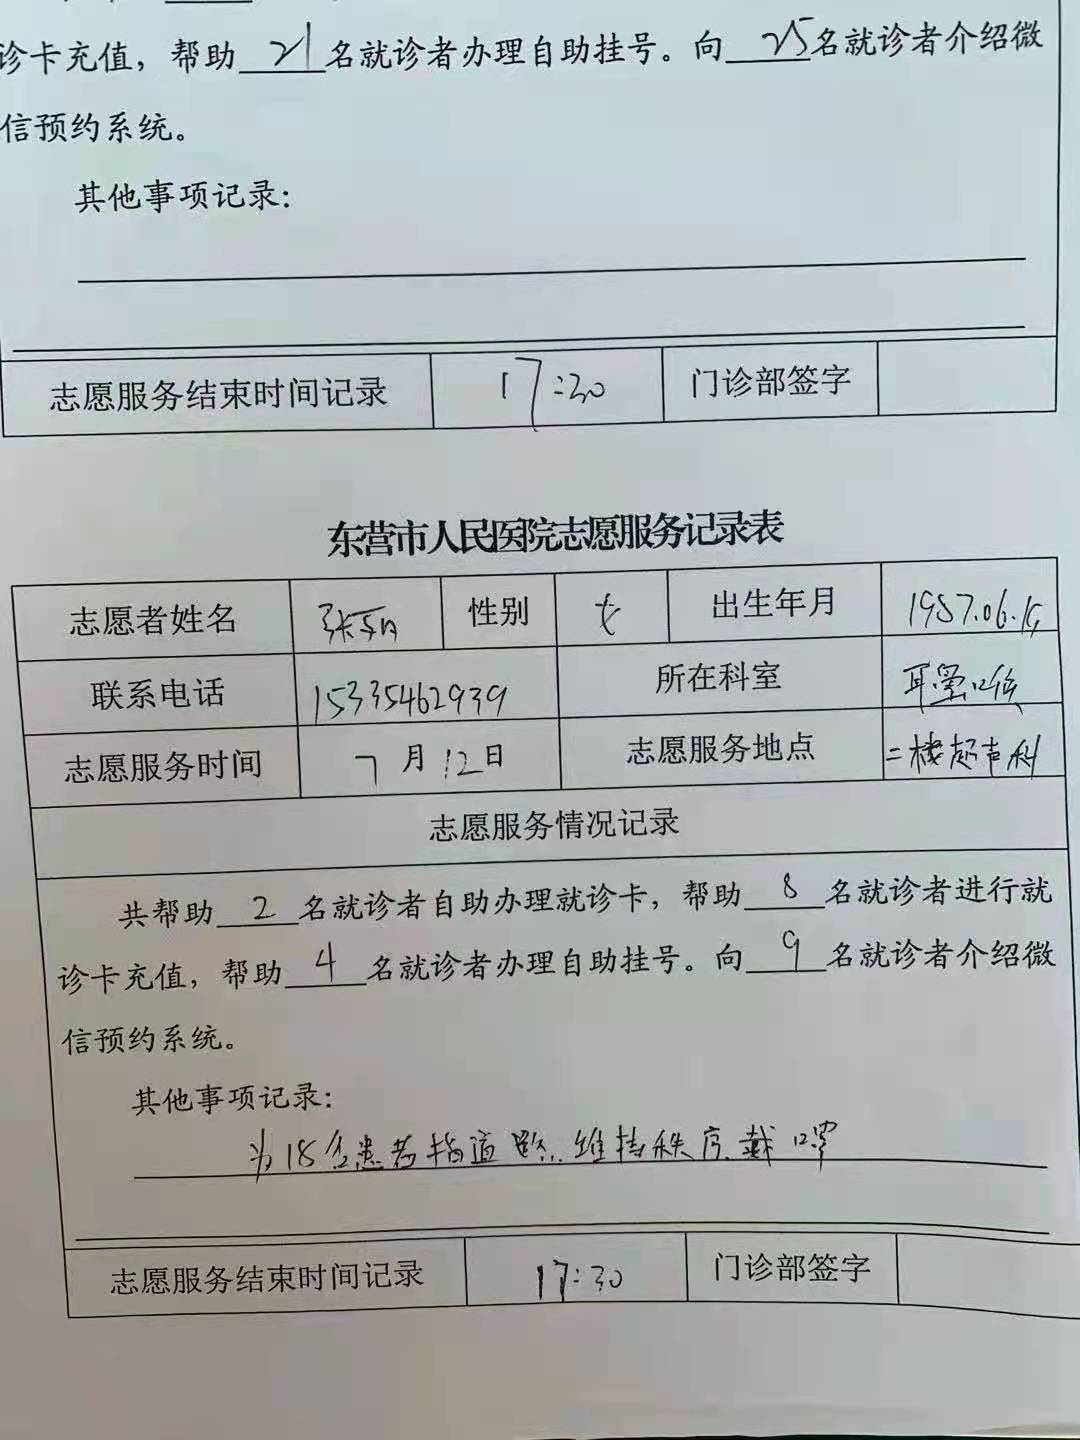 诊卡充值，帮助 21 名就诊者办理自助挂号。向 25 名就诊者介绍微
信预约系统。
其他事项记录：
志愿服务结束时间记录 17:30 门诊部签字
东营市人民医院志愿服务记录表
志愿者姓名 张 性别 女 出生年月 1987.06.
联系电话 15335462939 所在科室 耳鼻喉
志愿服务时间 7月12日 志愿服务地点 二楼超声科
志愿服务情况记录
共帮助 2 名就诊者自助办理就诊卡，帮助 8 名就诊者进行就
诊卡充值，帮助 4 名就诊者办理自助挂号。向 9 名就诊者介绍微
信预约系统。
其他事项记录：
为18名患者指道路.维持秩序.戴口罩
志愿服务结束时间记录 17:30 门诊部签字